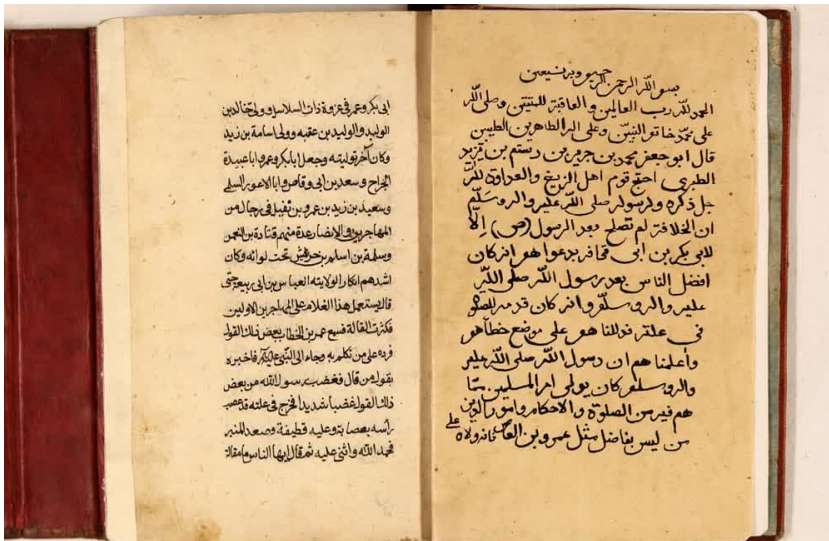 بسم الله الرحمن الرحيم وبه نستعين
الحمد لله رب العالمين والعاقبة للمتقين وصلى الله
على محمد خاتم النبيين وعلى اله الطاهرين الطيبين
قال ابو جعفر محمد بن جرير بن رستم بن يزيد
الطبري احتج قوم اهل الزيغ والعداوة لله
جل ذكره ولرسوله صلى الله عليه واله وسلم
ان الخلافة لم تصلح بعد الرسول (ص) إلا
لابي بكر بن ابى قحافة بدعواهم انه كان
افضل الناس بعد رسول الله صلى الله
عليه واله وسلم وانه كان قدمه للصلوة
في علته فدللنا هم على موضع خطأهم
وأعلمنا هم ان رسول الله صلى الله عليه
واله وسلم كان يولى امر المسلمين بما
هم فيه من الصلوة والاحكام وامور الدين
من ليس بفاضل مثل عمرو بن العاص فانه ولاه على
ابى بكر وعمر فى غزوة ذات السلاسل وولى خالد بن
الوليد والوليد بن عقبه وولى اسامة بن زيد
وكان آخر توليته وجعل ابابكر وعمر وابا عبيدة
الجراح وسعد بن ابى وقاص وابا الاعور السلمى
وسعيد بن زيد بن عمرو بن نفيل فى رجال من
المهاجرين والانصار عدة منهم قتادة بن النعمن
وسلمة بن اسلم بن حريش تحت لوائه وكان
اشدهم انكارا لولايته العباس بن ابى ربيعه حتى
قال يستعمل هذا الغلام على المهاجرين الاولين
فكثرت القالة فسمع عمر بن الخطاب بعض ذلك القول
فرده على من تكلم به وجاء الى النبى عليه فاخبره
بقول من قال فغضب رسول الله من بعض
ذلك القول غضبا شديدا فخرج فى علته قد عصب
راسه بعصابة وعليه قطيفة وصعد المنبر
فحمد الله واثنى عليه ثم قال ايها الناس ما مقالة